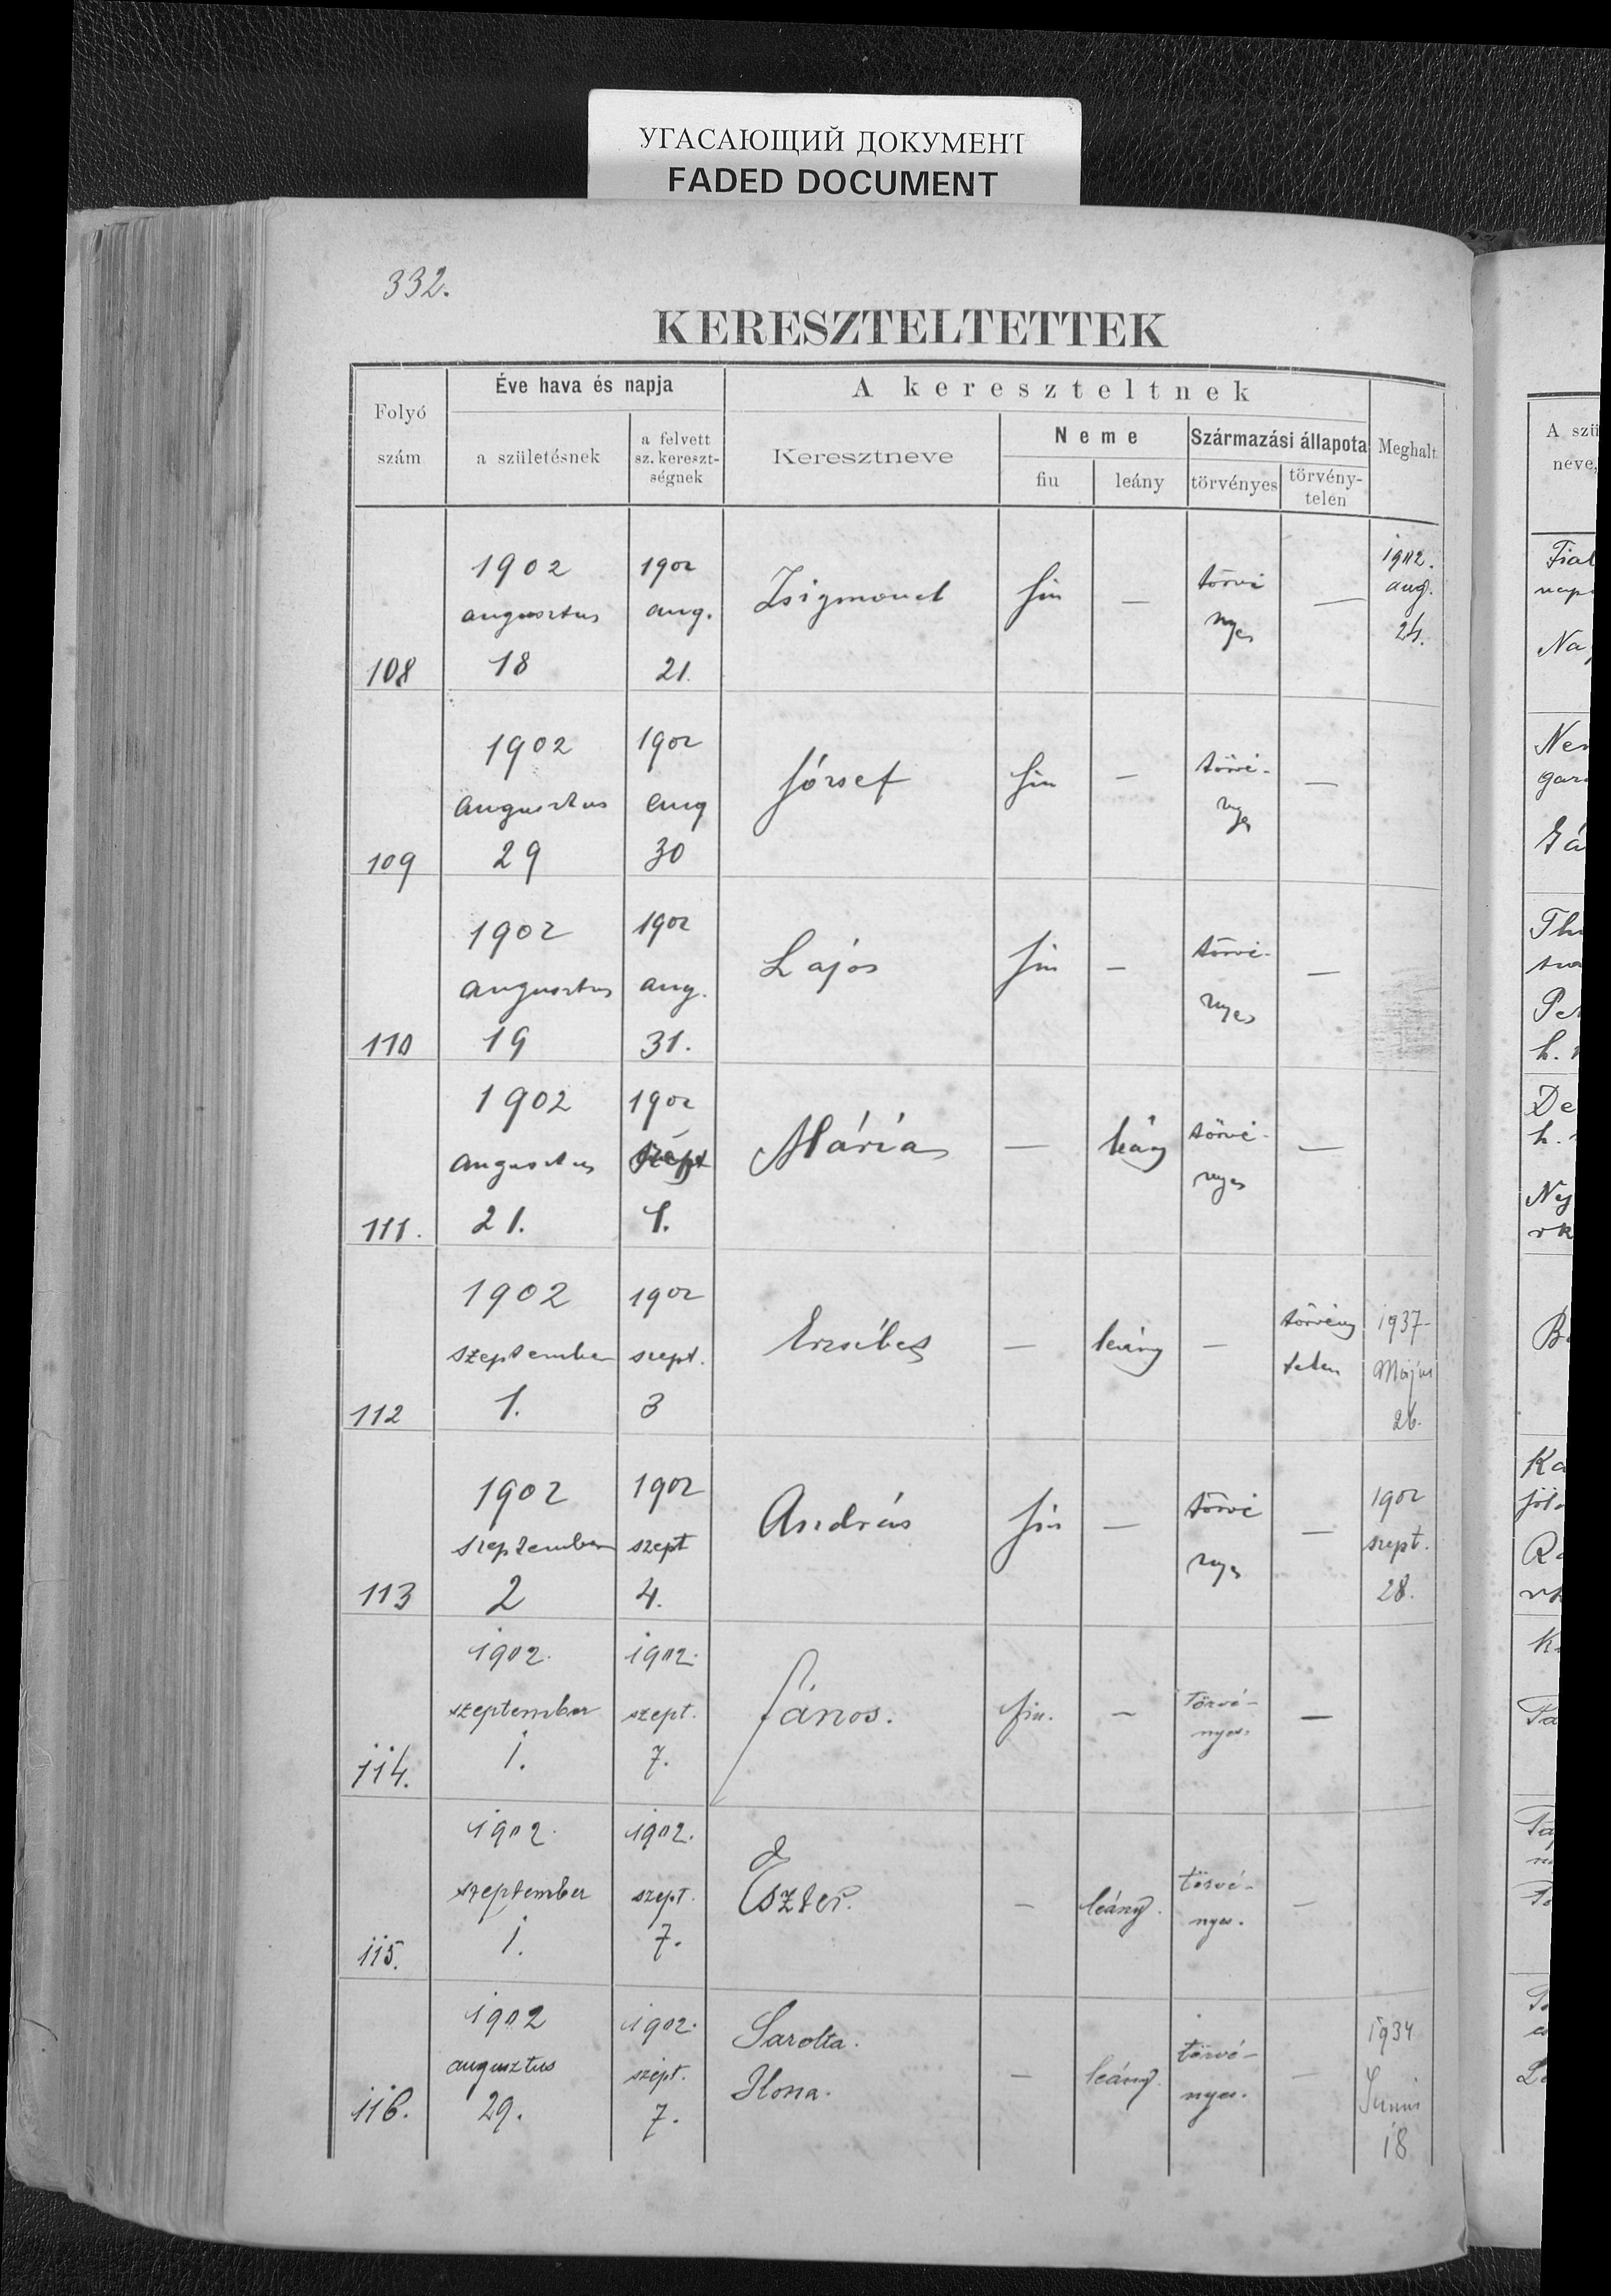 УГАСАЮЩИЙ ДОКУМЕНТ
FADED DOCUMENT
332.
KERESZTELTETTEK
Folyó szám
Éve hava és napja
a születésnek
a felvett sz. kereszt-ségnek
A kereszteltnek
Keresztneve
Neme
fiu
leány
Származási állapota
törvényes
törvény-telen
Meghalt.
A szü
neve,
108
1902 augusztus 18
1902 aug. 21.
Zsigmond
fiu
—
törvé nyes
—
1902. aug. 24.
109
1902 augusztus 29
1902 aug 30
József
fiu
—
törvé- nyes
—
110
1902 augusztus 19
1902 aug. 31.
Lajos
fiu
—
törvé- nyes
—
111.
1902 augusztus 21.
1902 Szept 1.
Mária
—
leány
törvé- nyes
—
112
1902 szeptember 1.
1902 szept. 3
Erzsébet
—
leány
—
törvény telen
1937 Május 26.
113
1902 szeptember 2
1902 szept 4.
András
fiu
—
törvé nyes
—
1902 szept. 28.
114.
1902. szeptember 1.
1902. szept. 7.
János.
fiu.
—
Törvé- nyes.
—
115.
1902. szeptember 1.
1902. szept. 7.
Eszter.
—
leány.
törvé- nyes.
—
116.
1902 augusztus 29.
1902. szept. 7.
Sarolta. Ilona.
—
leány.
törvé- nyes.
—
1934 Junius 18